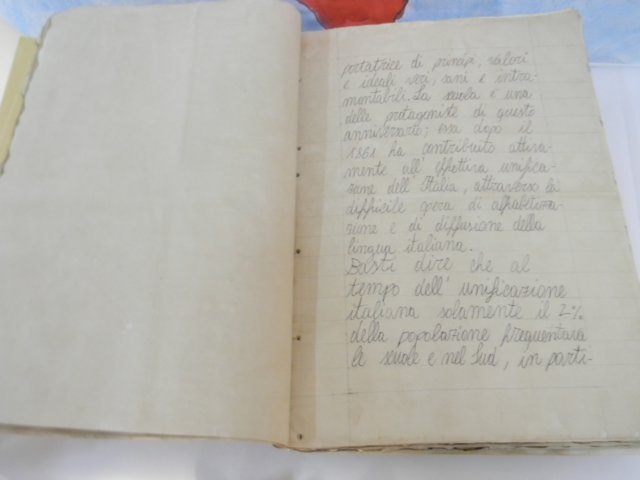 portatrice di principi, valori
e ideali veri, sani e intra-
montabili. La scuola è una
delle protagoniste di questo
anniversario; essa dopo il
1861 ha contribuito attiva-
mente all' effettiva unifica-
zione dell' Italia, attraverso la
difficile opera di alfabetizza-
zione e di diffusione della
lingua italiana.
Basti dire che al
tempo dell' unificazione
italiana solamente il 2%
della popolazione frequentava
le scuole e nel Sud, in parti-